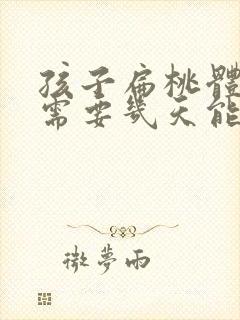 孩子扁桃體
需要幾天能
微夢雨